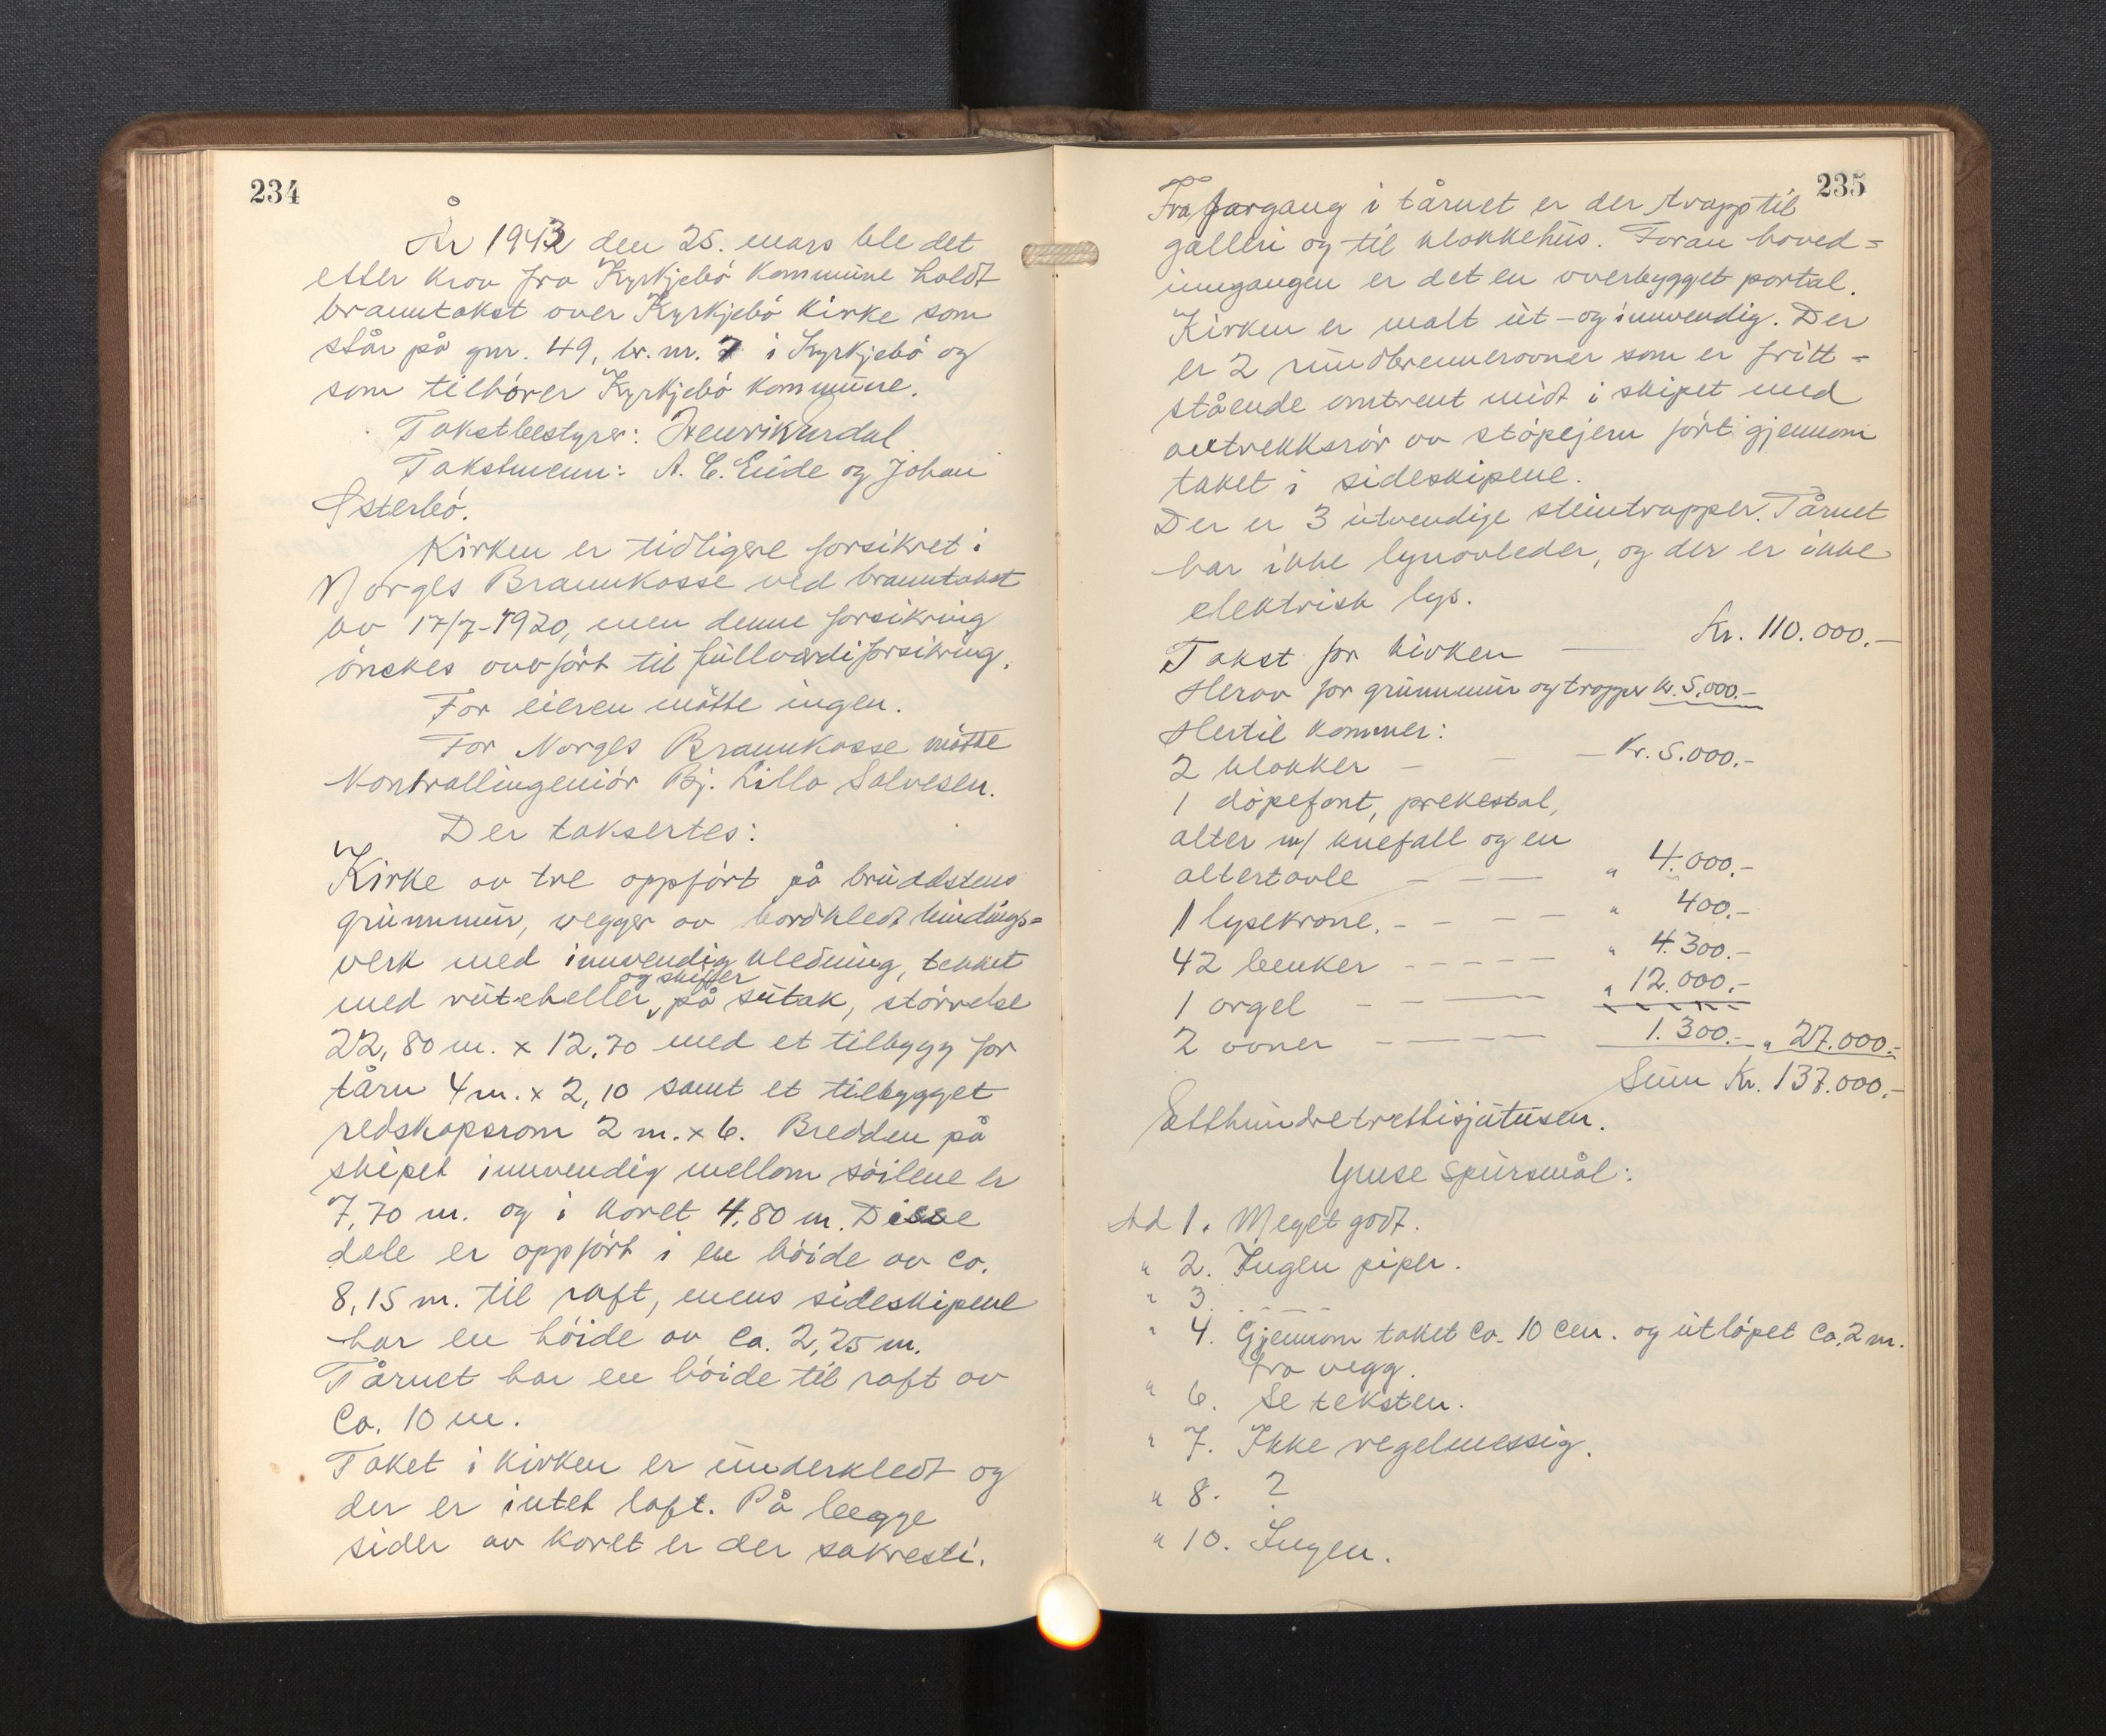 234
År 1943 den 25. mars ble det
etter krav fra Kyrkjebø kommune holdt
branntakst over Kyrkjebø kirke som
står på gnr. 49, br. nr. 7 i Kyrkjebø og
som tilhører Kyrkjebø kommune.
Takstbestyrer: Henrik Urdal
Takstmenn: A. C. Eide og Johan
Østerbø.
Kirken er tidligere forsikret i
Norges Brannkasse ved branntakst
av 17/7-1920, men denne forsikring
ønskes overført til fullverdiforsikring.
For eieren møtte ingen.
For Norges Brannkasse møtte
Kontrollingeniør Bj. Lillo Salvesen.
Der taksertes:
Kirke av tre oppført på bruddstens
grunnmur, vegger av bordkledt bindings=
verk med innvendig kledning, tekket
og skiffer
med ruteheller på sutak, størrelse
22,80 m. x 12,70 med et tilbygg for
tårn 4 m. x 2,10 samt et tilbygget
redskapsrom 2 m. x 6. Bredden på
skipet innvendig mellom søilene er
7,70 m. og i koret 4,80 m. Disse
dele er oppført i en høide av ca.
8,15 m. til raft, mens sideskipene
har en høide av ca. 2,25 m.
Tårnet har en høide til raft av
ca. 10 m.
Taket i kirken er underkledt og
der er intet loft. På begge
sider av koret er der sakresti.
235
Fra forgang i tårnet er der trapp til
galleri og til klokkehus. Foran hoved=
inngangen er det en overbygget portal.
Kirken er malt ut- og innvendig. Der
er 2 rundbrennerovner som er fritt=
stående omtrent midt i skipet med
avtrekksrør av støpejern ført gjennom
taket i sideskipene.
Der er 3 utvendige steintrapper. Tårnet
har ikke lynavleder, og der er ikke
elektrisk lys.
Takst for kirken — Kr. 110.000.-
Herav for grunnmur og trapper kr. 5.000.-
Hertil kommer:
2 klokker — — — Kr. 5.000.-
1 døpefont, prekestol,
alter m/ knefall og en
altertavle — — — " 4.000.-
1 lysekrone. - — — — " 400.-
42 benker - — — — — " 4.300.-
1 orgel — — — — " 12.000.-
2 ovner — — — — 1.300.- " 27.000.-
Sum Kr. 137.000.-
Etthundretrettisjutusen.
Ymse spursmål:
Ad 1. Meget godt.
" 2. Ingen piper.
" 3. - - - -
" 4. Gjennom taket ca. 10 cm. og utløpet ca. 2 m.
fra vegg.
" 6. Se teksten.
" 7. Ikke regelmessig.
" 8. ?
" 10. Ingen.